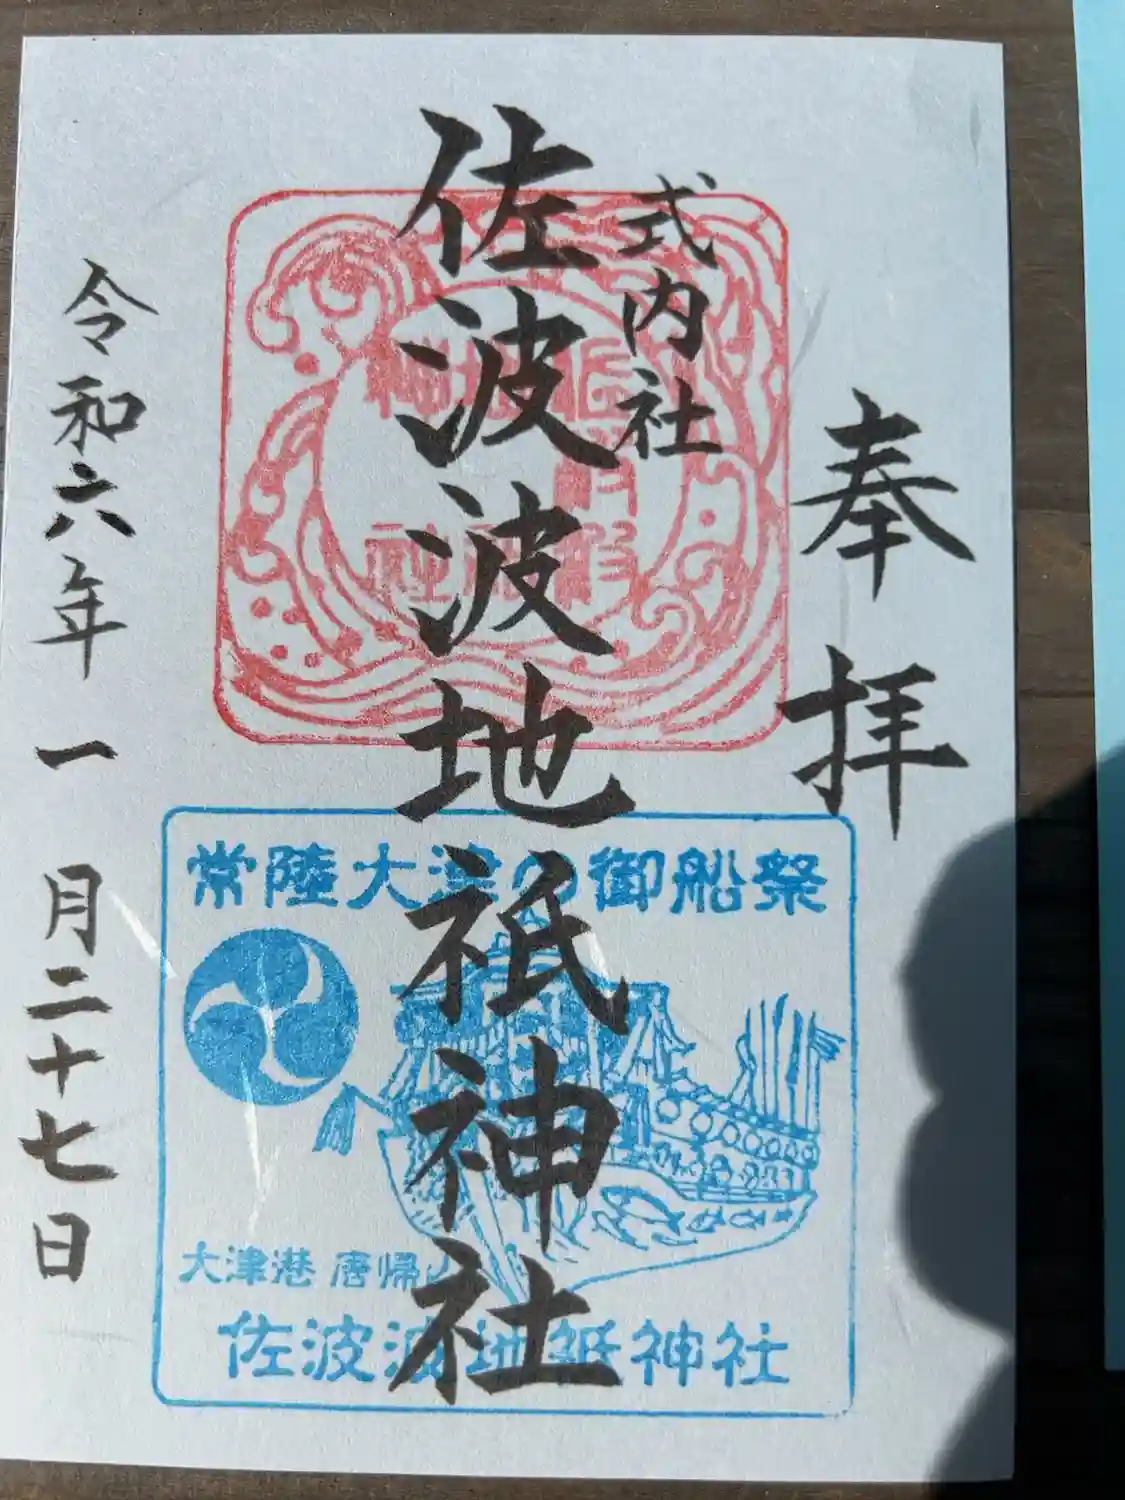 奉拝
式内社
佐波波地祇神社
令和六年一月二十七日
常陸大津の御船祭
大津港 唐帰山
佐波波地祇神社